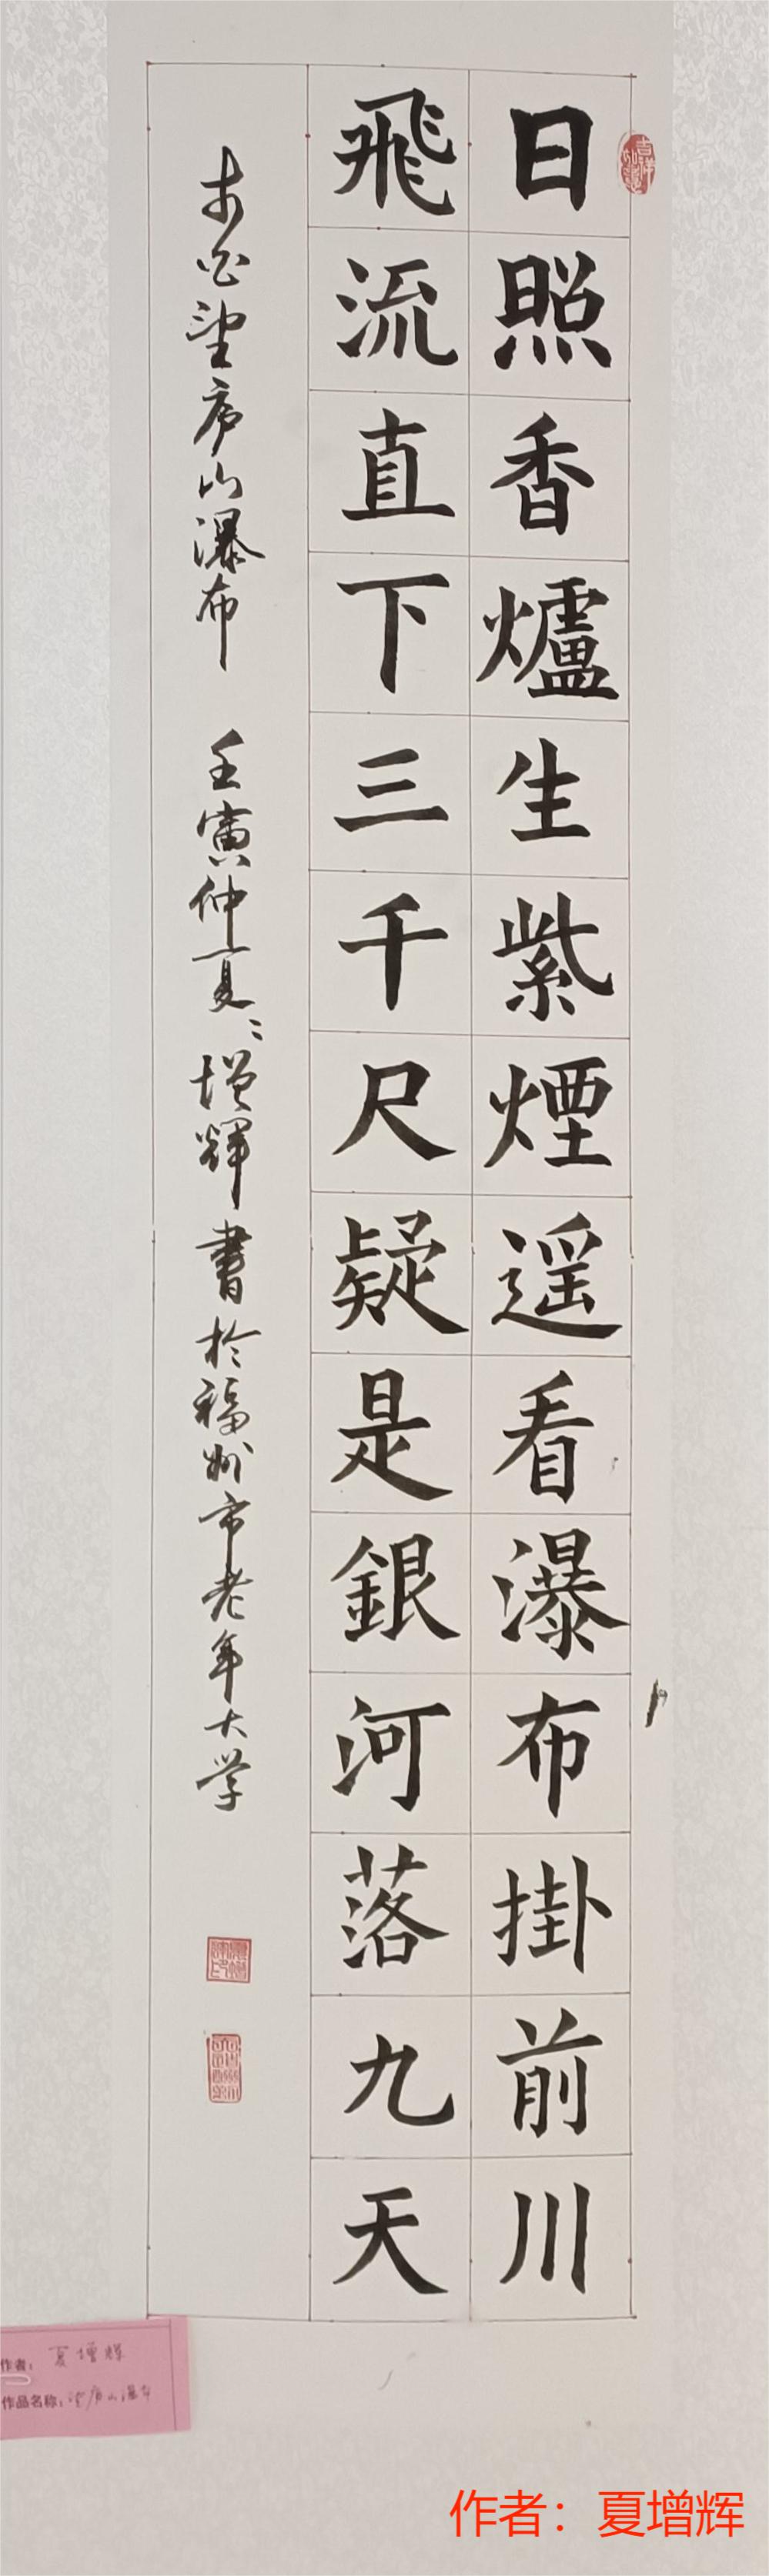 日照香爐生紫煙遥看瀑布掛前川
飛流直下三千尺疑是銀河落九天
李白望庐山瀑布 壬寅仲夏〻增輝書於福州市老年大学
吉祥如意
作者：夏增辉
作品名称：望庐山瀑布
作者：夏增辉